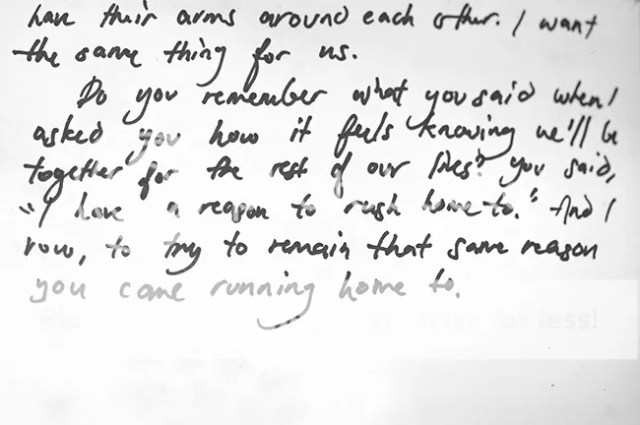 have their arms around each other. I want
the same thing for us.
Do you remember what you said when I
asked you how it feels knowing we'll be
together for the rest of our lives? You said,
"I have a reason to rush home to." And I
vow, to try to remain that same reason
you come running home to.